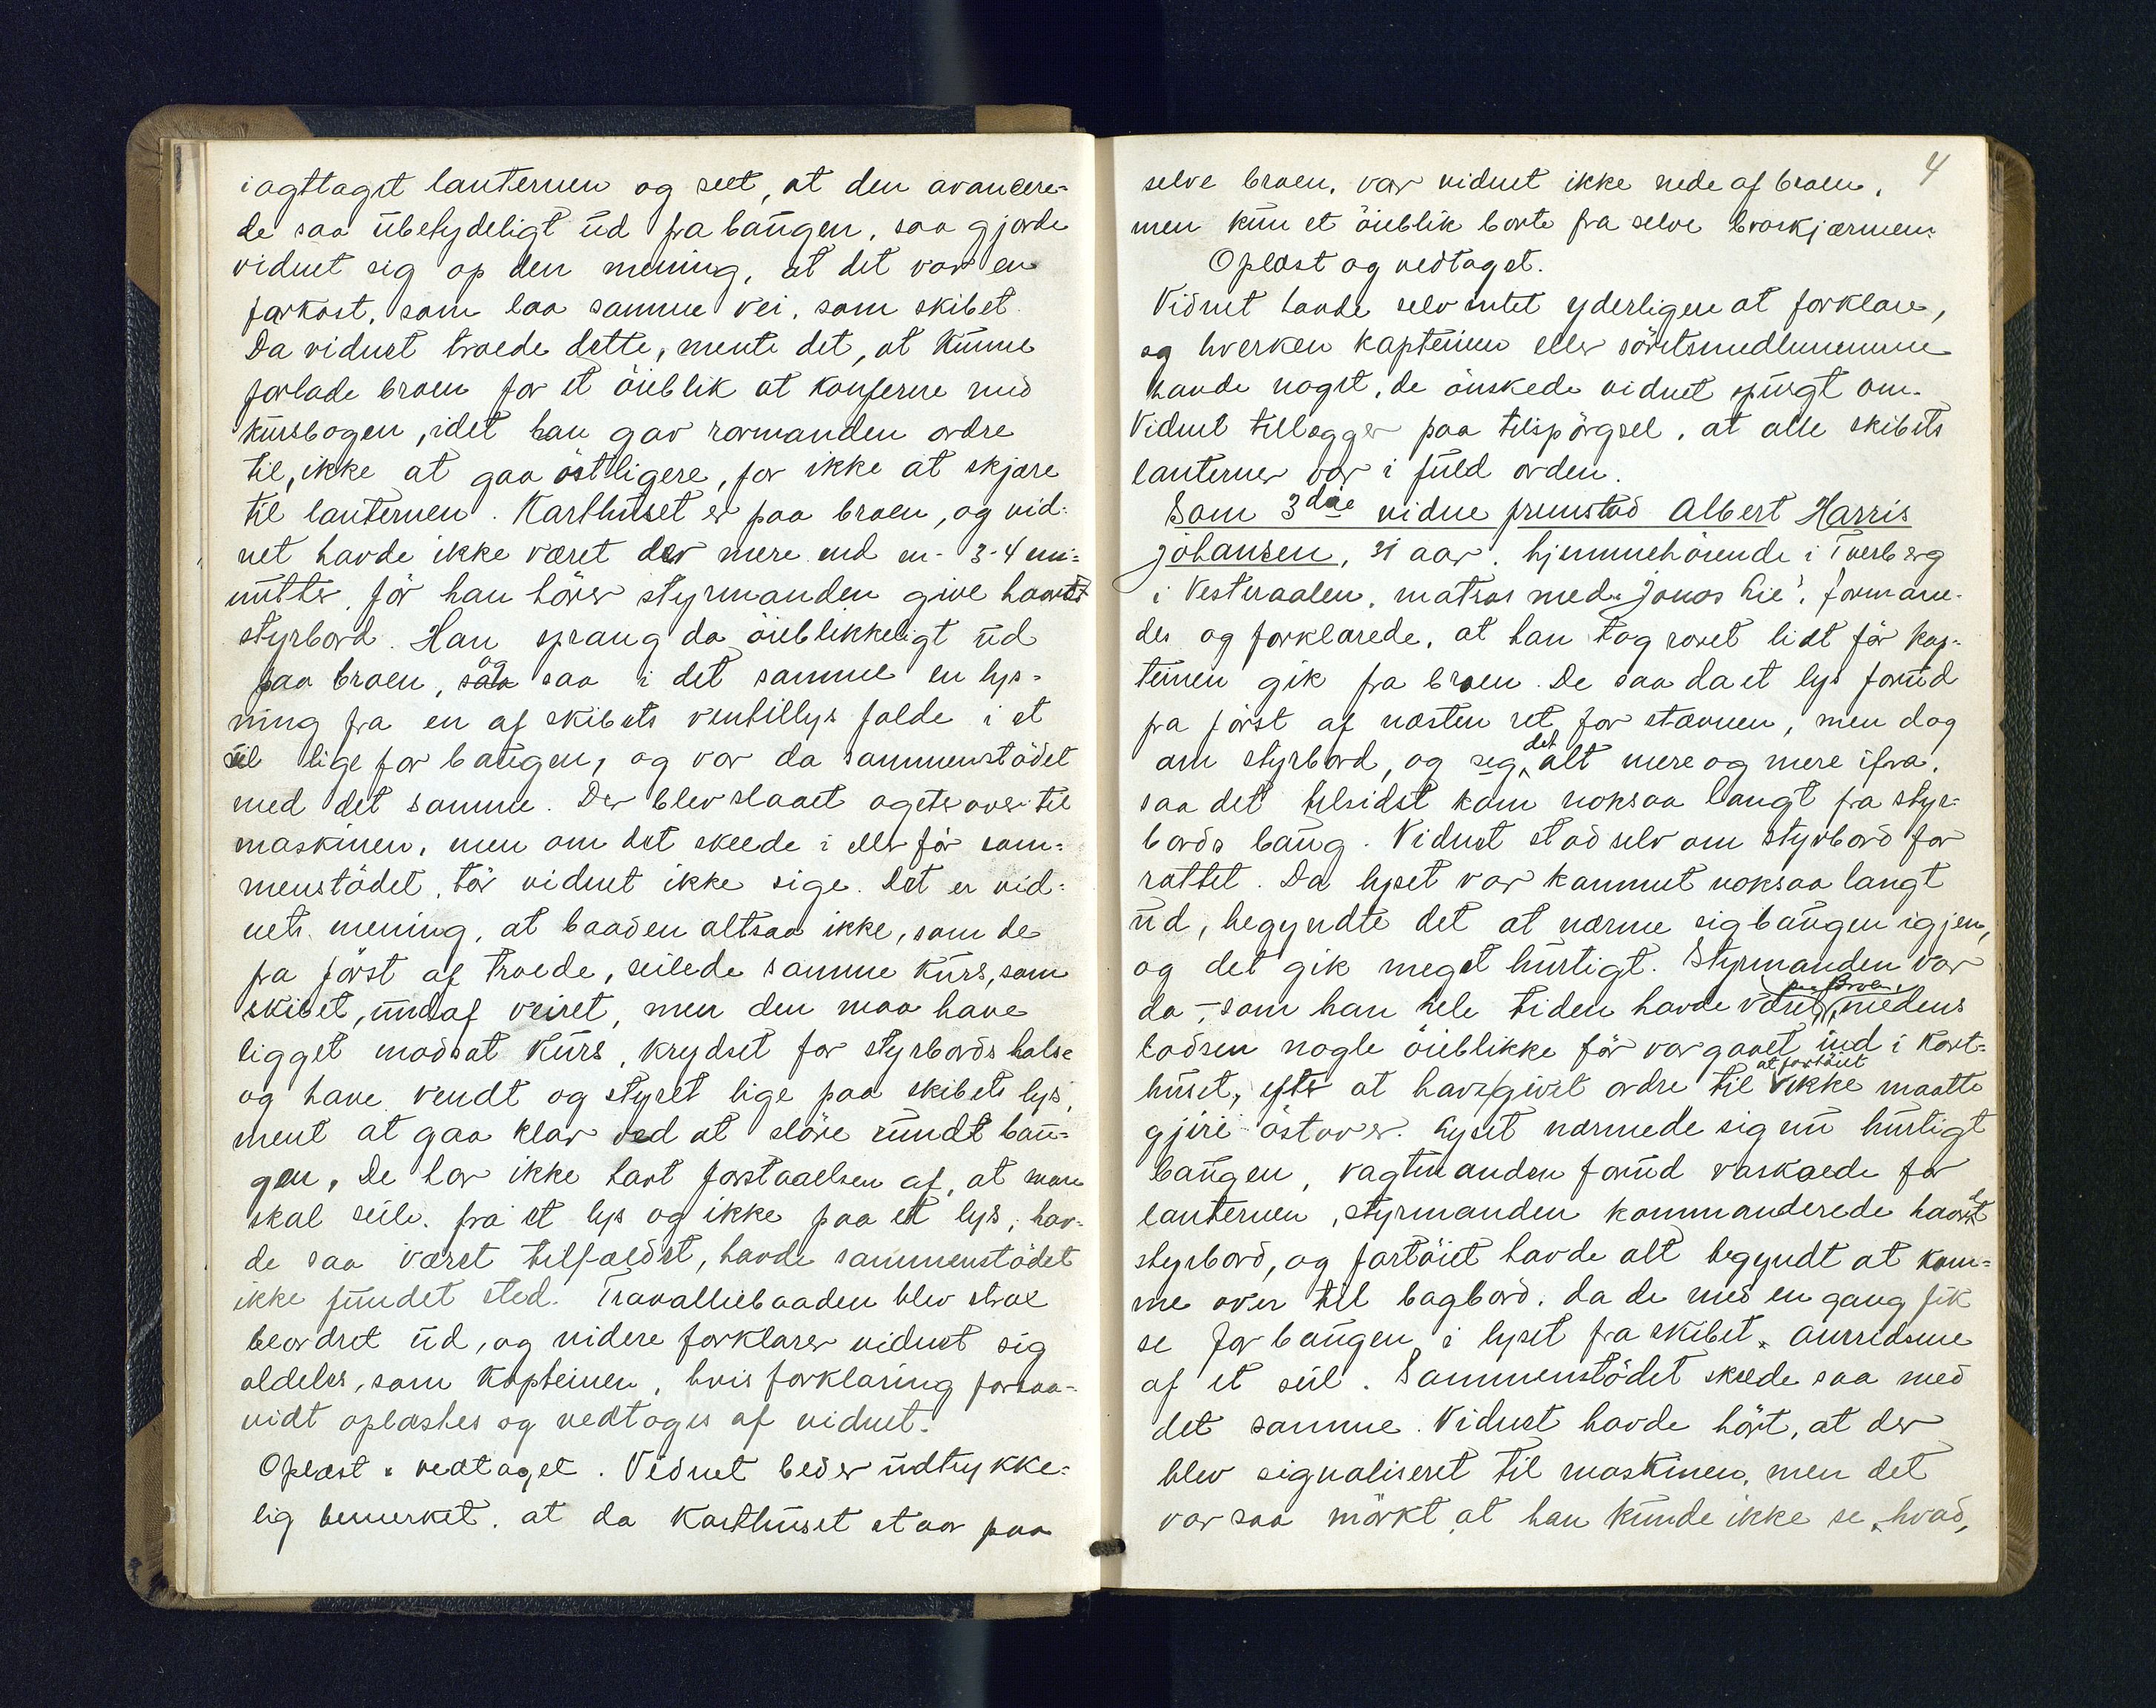 iagttaget lanternen og seet, at den avancere-
de saa ubetydeligt ud fra baugen, saa gjorde
vidnet sig op den mening, at det var en
farkost, som laa samme vei, som skibet.
Da vidnet troede dette, mente det, at kunne
forlade broen for et öieblik at konferere med
kursbogen, idet han gav rormanden ordre
til, ikke at gaa östligere, for ikke at skjære
til lanternen. Karthuset er paa broen, og vid-
net havde ikke været der mere end en 3-4 mi-
nutter, för han hörer styrmanden give haardt
styrbord. Han sprang da öieblikkeligt ud
paa broen, og saa i det samme en lys-
ning fra en af skibets ventillys falde i et
seil lige for baugen, og var da sammenstödet
med det samme. Der blev slaaet agterover til
maskinen, men om det skeede i eller för sam-
menstödet, tör vidnet ikke sige. Det er vid-
nets mening, at baaden altsaa ikke, som de
fra först af troede, seilede samme kurs, som
skibet, undaf veiret, men den maa have
ligget modsat kurs, krydset for styrbords halse
og have vendt og styret lige paa skibets lys,
ment at gaa klar ved at slöre rundt bau-
gen. De har ikke havt forstaaelsen af, at man
skal seile fra et lys og ikke paa et lys; hav-
de saa været tilfældet, havde sammenstödet
ikke fundet sted. Travalliebaaden blev strax
beordret ud, og videre forklarer vidnet sig
aldeles, som kapteinen, hvis forklaring forsaa-
vidt oplæstes og vedtoges af vidnet.
Oplæst & vedtaget. Vidnet beder udtrykke-
lig bemerket, at da karthuset staar paa
4
selve broen, var vidnet ikke nede af broen,
men kun et öieblik borte fra selve broskjærmen.
Oplæst og vedtaget.
Vidnet havde selv intet yderligere at forklare,
og hverken kapteinen eller söretsmedlemmerne
havde noget, de önskede vidnet spurgt om.
Vidnet tillægger paa tilspörgsel, at alle skibets
lanterner var i fuld orden.
Som 3die vidne fremstod Albert Harris
Johansen, 31 aar, hjemmehörende i Tverberg
i Vesteraalen, matros med "Jonas Lie", formane-
des og forklarede, at han tog roret lidt för kap-
teinen gik fra broen. De saa da et lys forud
fra först af næsten ret for stævnen, men dog
om styrbord, og seg det alt mere og mere ifra,
saa det tilsidst kom noksaa langt fra styr-
bords baug. Vidnet stod selv om styrbord for
rattet. Da lyset var kommet noksaa langt
ud, begyndte det at nærme sig baugen igjen,
og det gik meget hurtigt. Styrmanden var
da - som han hele tiden havde været paa broen, medens
lodsen nogle öieblikke för var gaaet ind i kart-
huset, efter at have givet ordre til at fartöiet ikke maatte
gjire östover. Lyset nærmede sig nu hurtigt
baugen, vagtmanden forud varskoede for
lanternen, styrmanden kommanderede haardt
styrbord, og fartöiet havde alt begyndt at kom-
me over til bagbord, da de med en gang fik
se for baugen i lyset fra skibet omridsene
af et seil. Sammenstödet skeede saa med
det samme. Vidnet havde hört, at der
blev signaliseret til maskinen, men det
var saa mörkt, at han kunde ikke se, hvad,